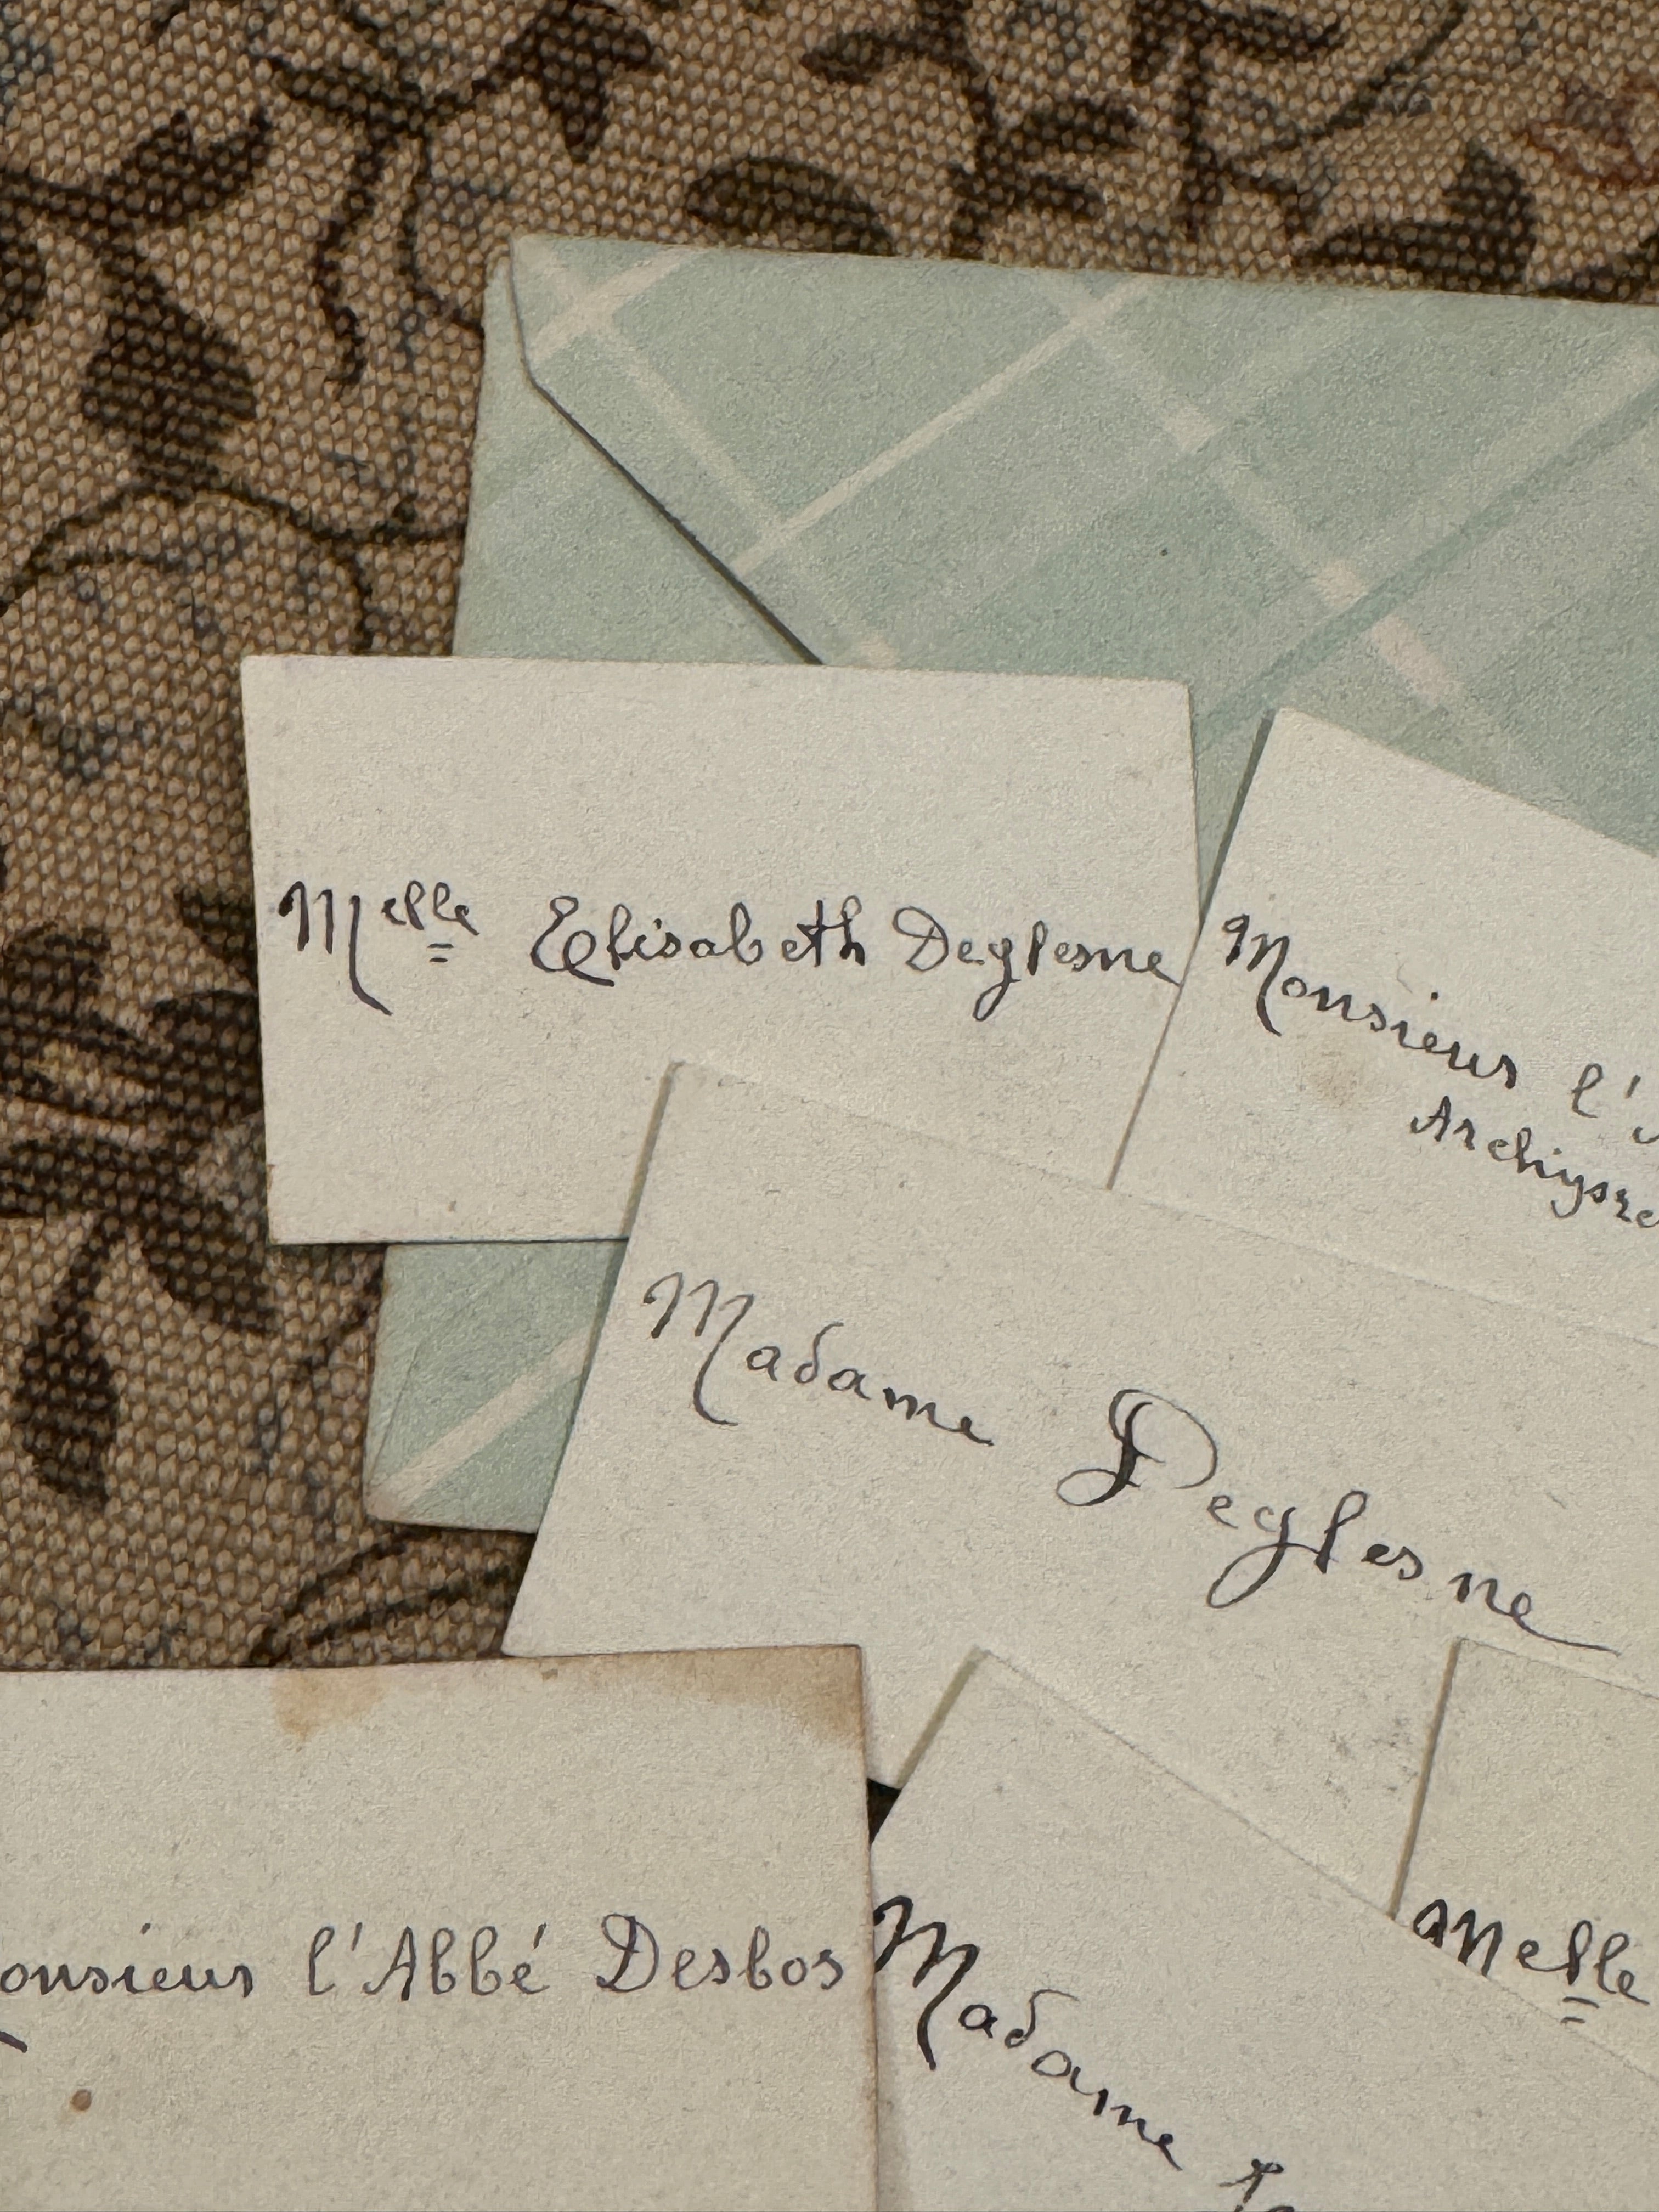 Melle Elisabeth Deglesne
Monsieur l'
Archipre
Madame Deglesne
onsieur l'Abbé Desbos
Madame
Melle